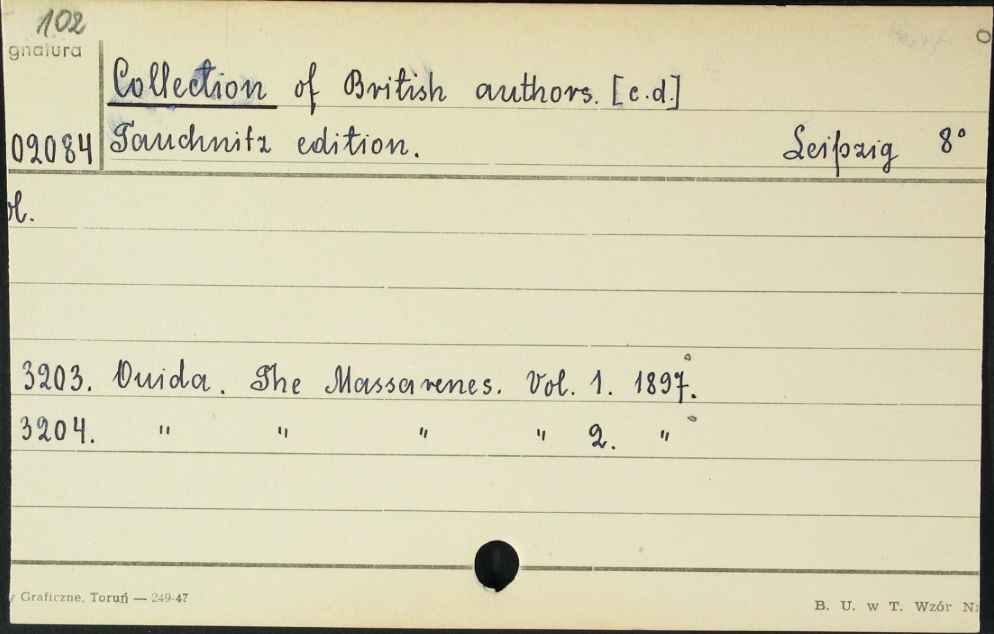 102
gnatura
Collection of British authors. [c.d.]
02084 Tauchnitz edition. Leipzig 8°
ol.
3203. Ouida. The Massarenes. Vol. 1. 1897.
3204. " " " " 2. "
y Graficzne, Toruń — 249-47
B. U. w T. Wzór N